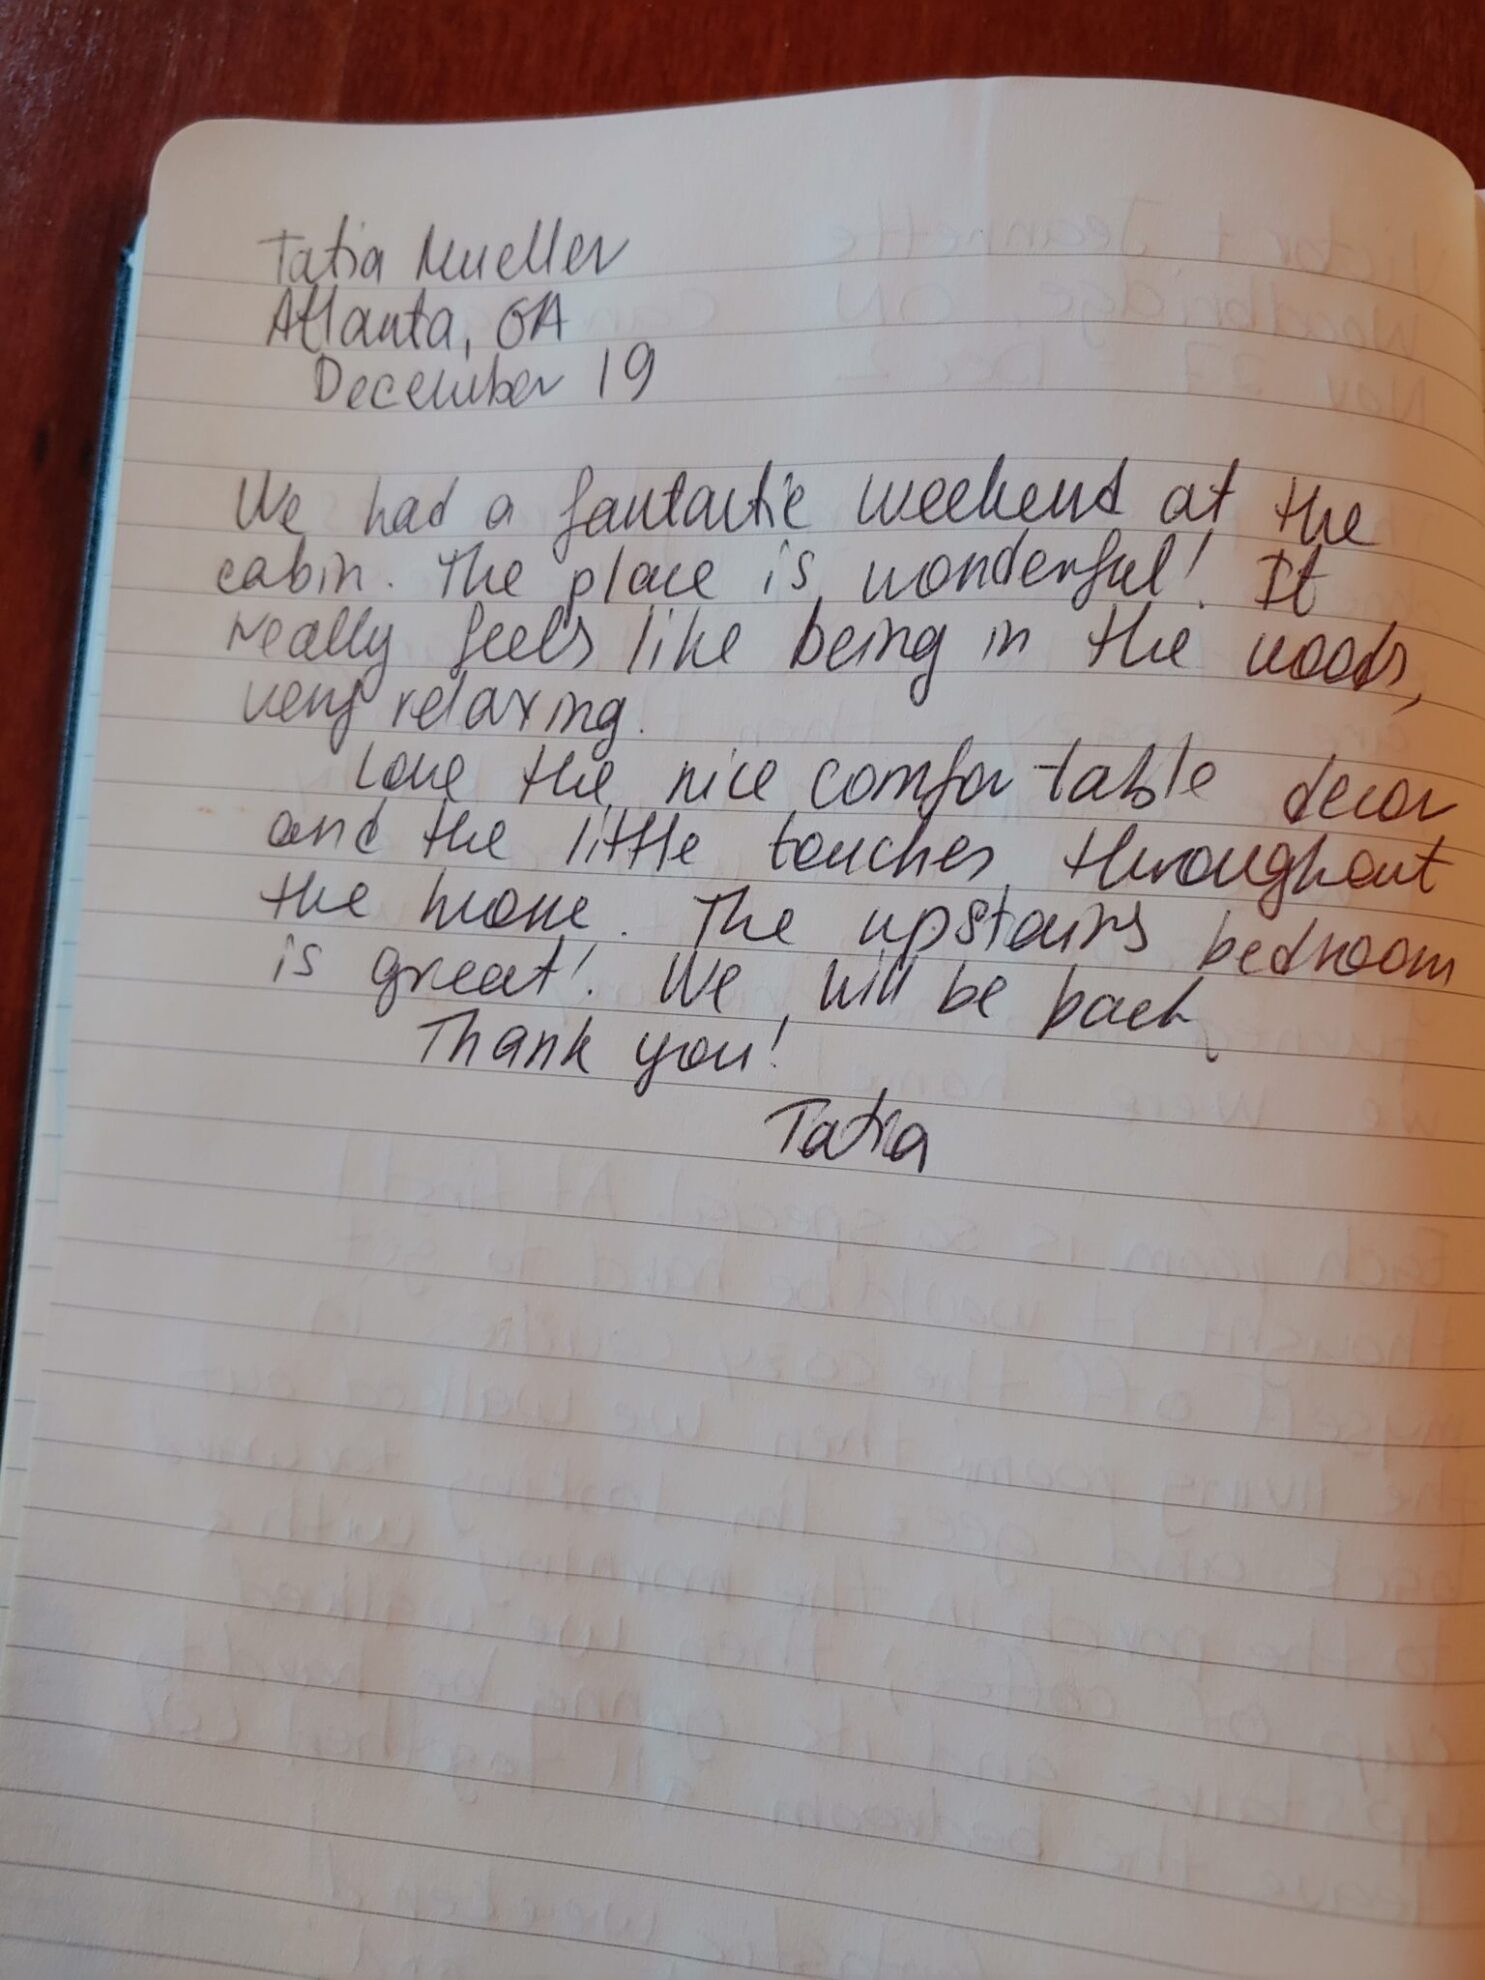 Tatia Mueller
Atlanta, GA
December 19
We had a fantastic weekend at the
cabin. The place is wonderful! It
really feels like being in the woods,
very relaxing.
Love the nice comfortable decor
and the little touches throughout
the home. The upstairs bedroom
is great! We will be back.
Thank you!
Tatia